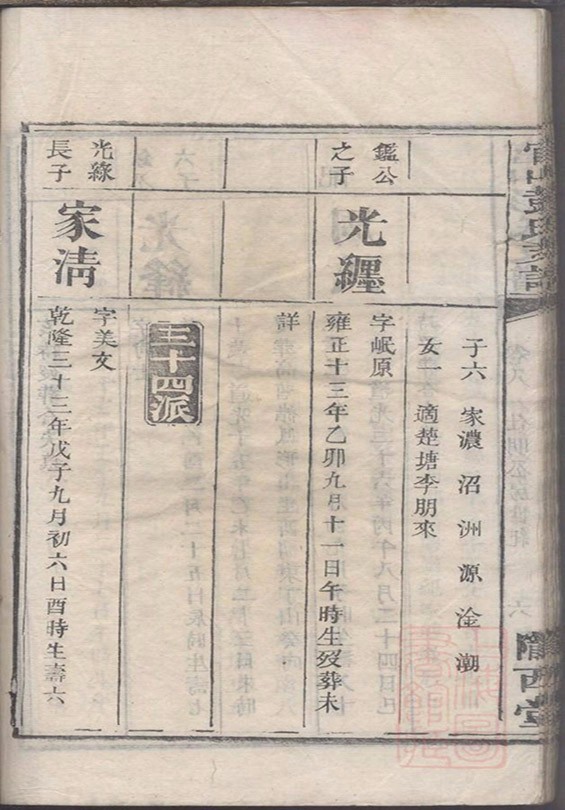 彭氏族譜
隴西堂
子六 家濃 沼 洲 源 淦 潮
女一 適楚塘李朋來
鑑公
之子
光纏
字岷原
雍正十三年乙卯九月十一日午時生歿葬未
詳
三十四派
光綠
長子
家清
字美文
乾隆三十三年戊子九月初六日酉時生壽六